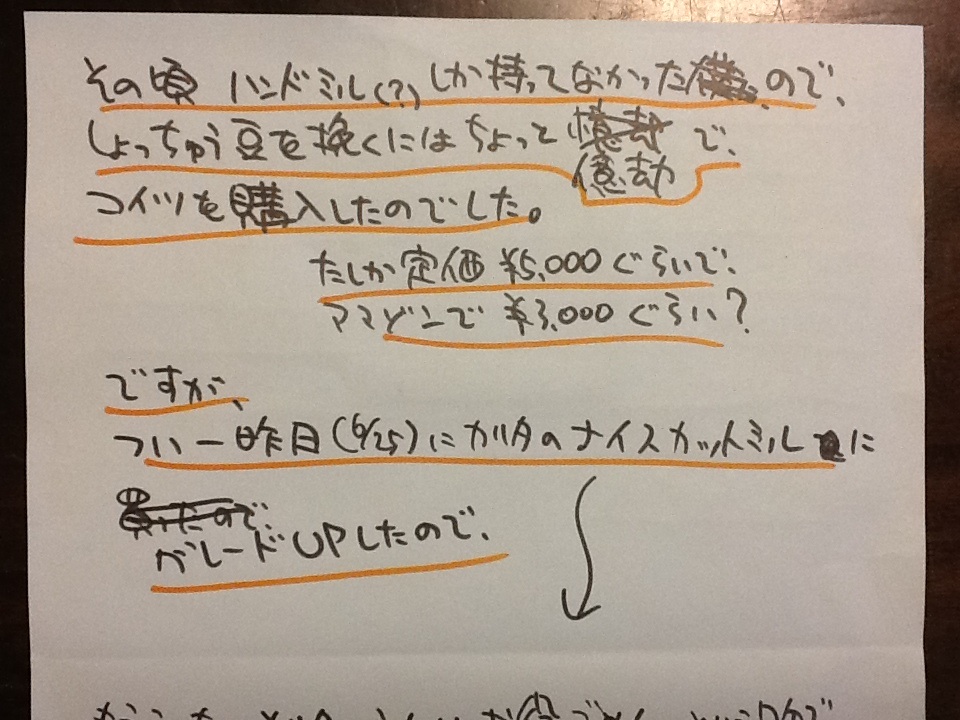 その頃 ハンドミル(?)しか持ってなかったので、
しょっちゅう豆を挽くにはちょっと億劫で、
コイツを購入したのでした。
たしか定価 ¥5,000ぐらいで、
ママどこで ¥3,000ぐらい?
ですが、
つい一昨日(6/25)にカリタのナイスカットミルに
グレードUPしたので、